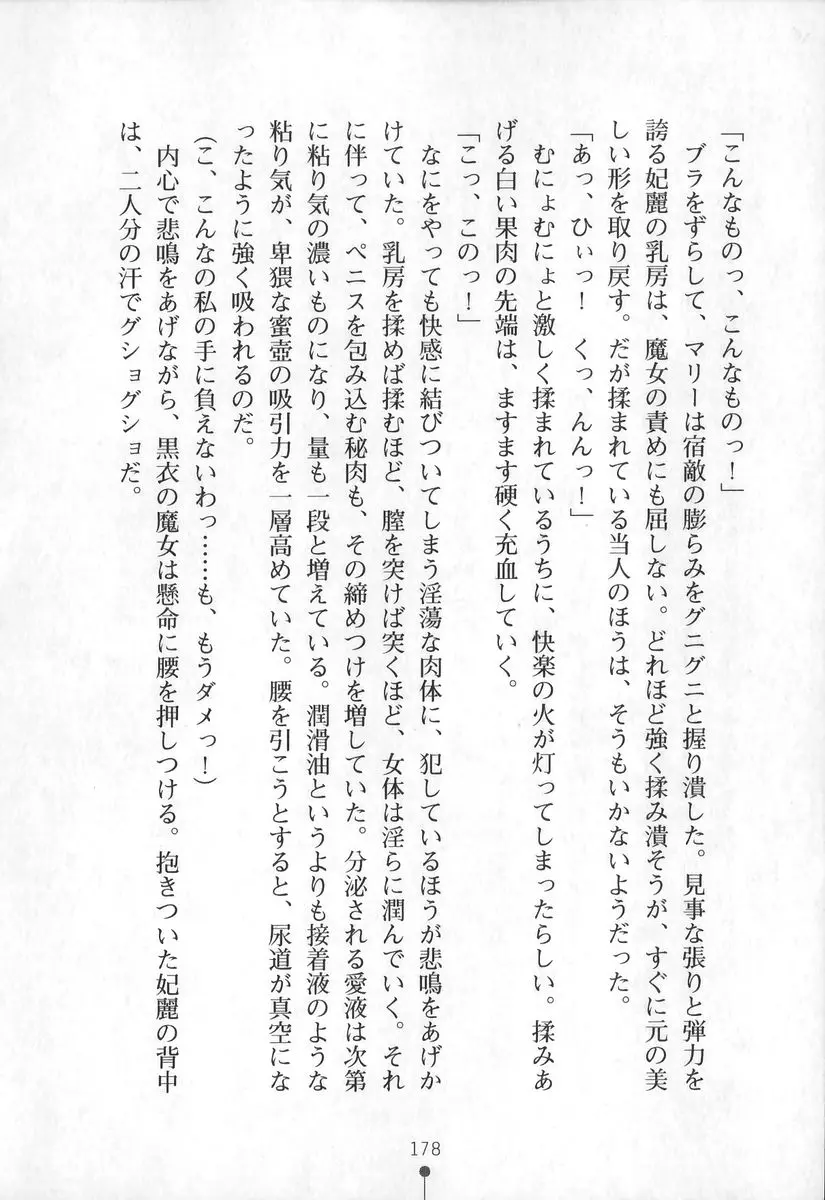 「こんなものっ、こんなものっ！」
ブラをずらして、マリーは宿敵の膨らみをグニグニと握り潰した。見事な張りと弾力を
誇る妃麗の乳房は、魔女の責めにも屈しない。どれほど強く揉み潰そうが、すぐに元の美
しい形を取り戻す。だが揉まれている当人のほうは、そうもいかないようだった。
「あっ、ひぃっ！　くっ、んんっ！」
むにょむにょと激しく揉まれているうちに、快楽の火が灯ってしまったらしい。揉みあ
げる白い果肉の先端は、ますます硬く充血していく。
「こっ、このっ！」
なにをやっても快感に結びついてしまう淫蕩な肉体に、犯しているほうが悲鳴をあげか
けていた。乳房を揉めば揉むほど、膣を突けば突くほど、女体は淫らに潤んでいく。それ
に伴って、ペニスを包み込む秘肉も、その締めつけを増していた。分泌される愛液は次第
に粘り気の濃いものになり、量も一段と増えている。潤滑油というよりも接着液のような
粘り気が、卑猥な蜜壺の吸引力を一層高めていた。腰を引こうとすると、尿道が真空にな
ったように強く吸われるのだ。
（こ、こんなの私の手に負えないわっ……も、もうダメっ！）
内心で悲鳴をあげながら、黒衣の魔女は懸命に腰を押しつける。抱きついた妃麗の背中
は、二人分の汗でグショグショだ。
178